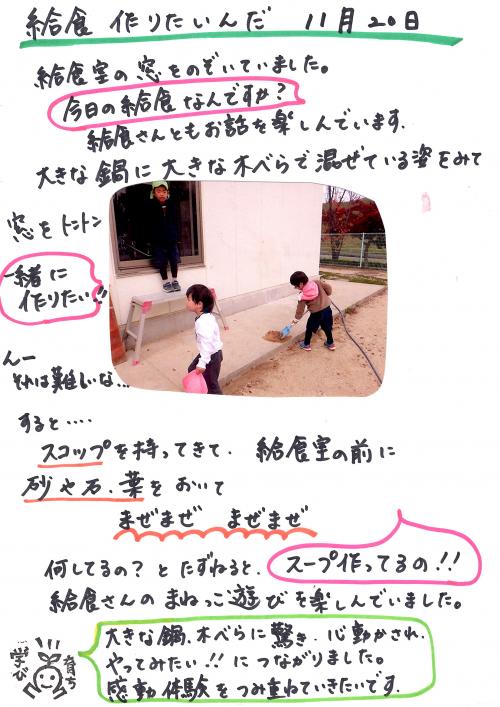 給食 作りたいんだ 11月20日
給食室の窓をのぞいていました。
今日の給食なんですか？
給食さんともお話を楽しんでいます.
大きな鍋に大きな木べらで混ぜている姿をみて
窓をトントン
一緒に
作りたい!!
んー
それは難しいな...
すると....
スコップを持ってきて. 給食室の前に
砂や石、葉をおいて
まぜまぜ まぜまぜ
何してるの？とたずねると、
スープ作ってるの!!
給食さんのまねっこ遊びを楽しんでいました。
大きな鍋.木べらに驚き.心動かされ.
やってみたい!!につながりました。
感動体験をつみ重ねていきたいです.
学び
育ち